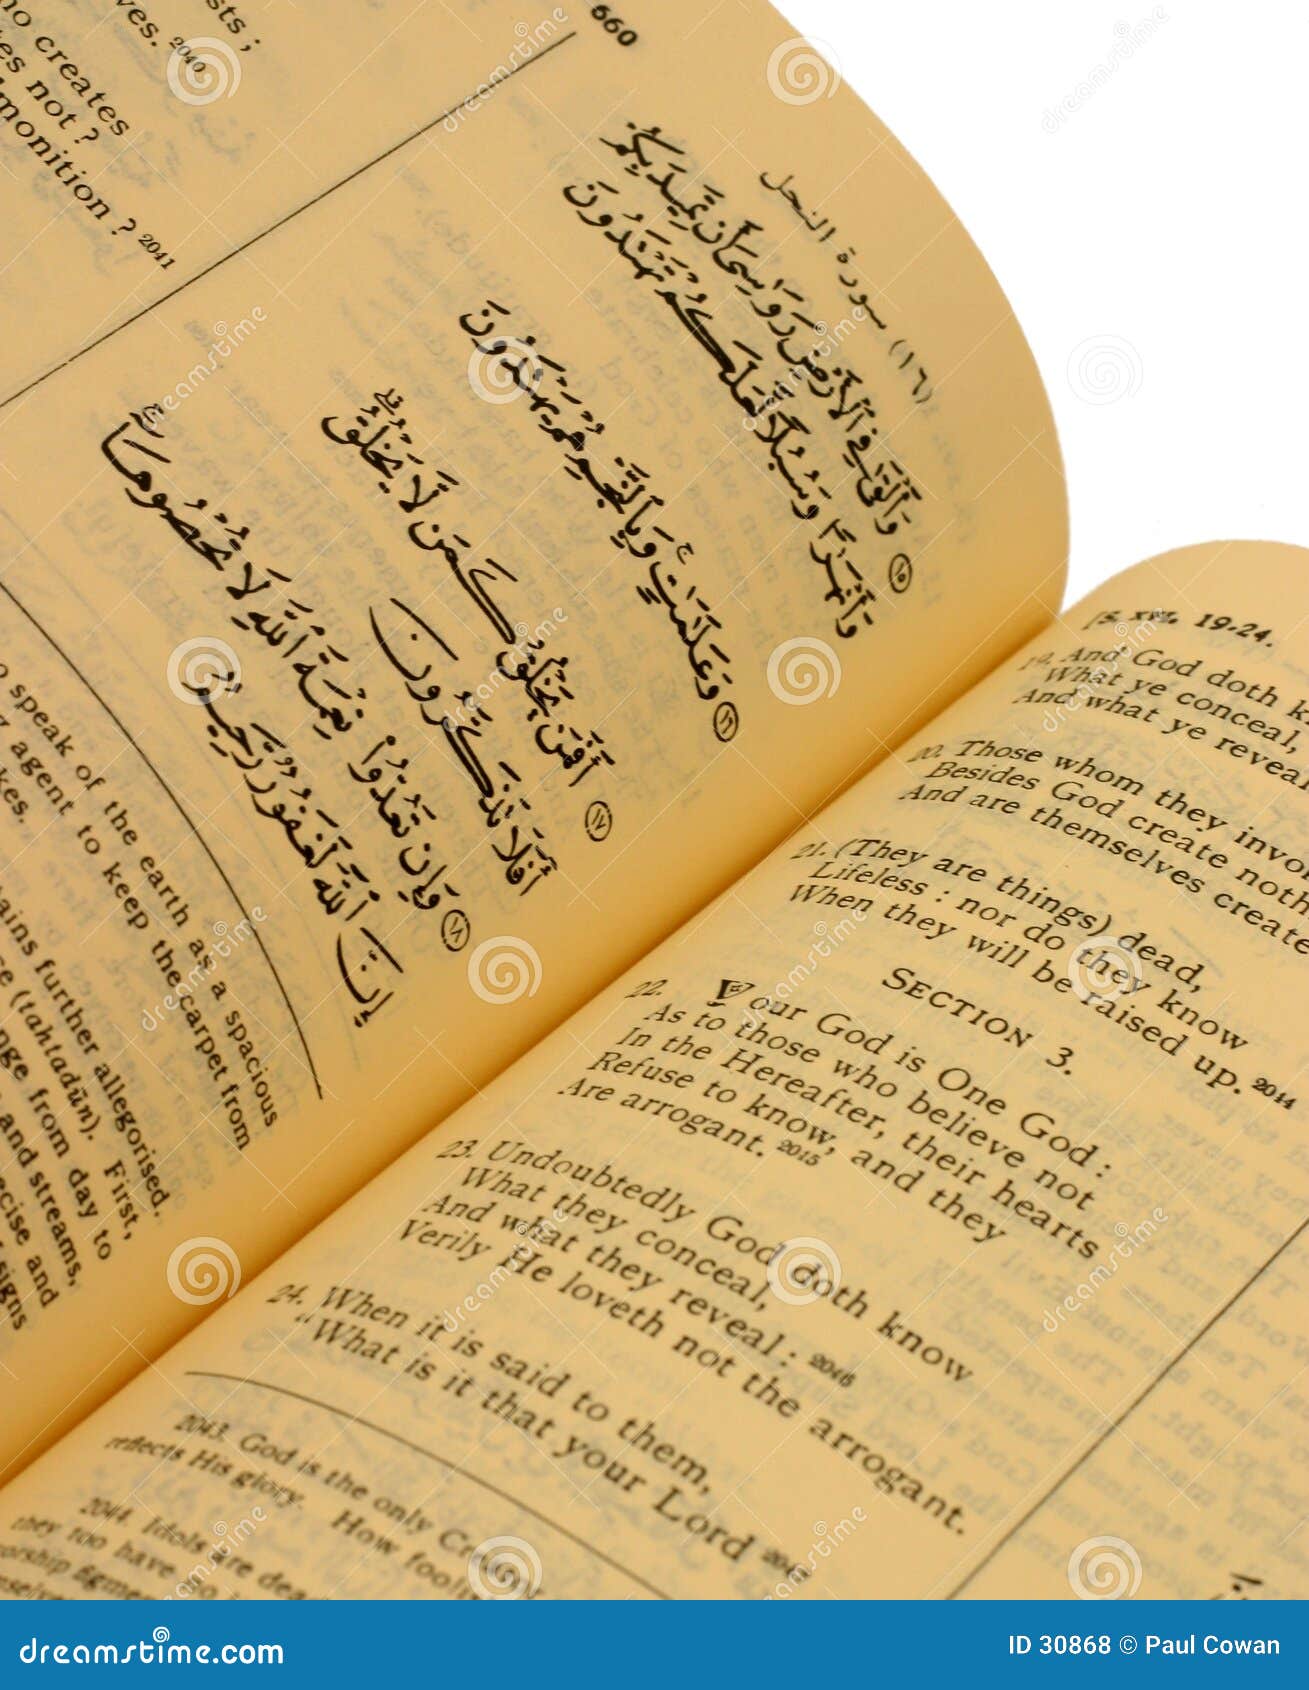 660
sts ;
ves. 2040
no creates
tes not ?
monition ? 2041
(١٦) سورة النحل
وَأَلْقَىٰ فِي ٱلْأَرْضِ رَوَٰسِىَ أَن تَمِيدَ بِكُمْ
وَأَنْهَٰرًا وَسُبُلًا لَّعَلَّكُمْ تَهْتَدُونَ
١٥
١٦ وَعَلَٰمَٰتٍ ۚ وَبِٱلنَّجْمِ هُمْ يَهْتَدُونَ
أَفَمَن يَخْلُقُ كَمَن لَّا يَخْلُقُ ۗ
١٧ أَفَلَا تَذَكَّرُونَ
وَإِن تَعُدُّوا۟ نِعْمَةَ ٱللَّهِ لَا تُحْصُوهَا ۗ
١٨ إِنَّ ٱللَّهَ لَغَفُورٌ رَّحِيمٌ
o speak of the earth as a spacious
agent to keep the carpet from
kes.
ains further allegorised.
ce (tahtadūn). First,
nge from day to
and streams,
ecise and
signs
[S. XVI. 19-24.
19. And God doth k
What ye conceal,
And what ye reveal
20. Those whom they invo
Besides God create noth
And are themselves create
21. (They are things) dead,
Lifeless : nor do they know
When they will be raised up. 2044
SECTION 3.
22. Your God is One God :
As to those who believe not
In the Hereafter, their hearts
Refuse to know, and they
Are arrogant. 2045
23. Undoubtedly God doth know
What they conceal,
And what they reveal : 2046
Verily He loveth not the arrogant.
24. When it is said to them,
"What is it that your Lord
2043. God is the only Cre
reflects His glory. How fooli
2044. Idols are dea
they too have no
orship figme
dreamstime
ID 30868 © Paul Cowan